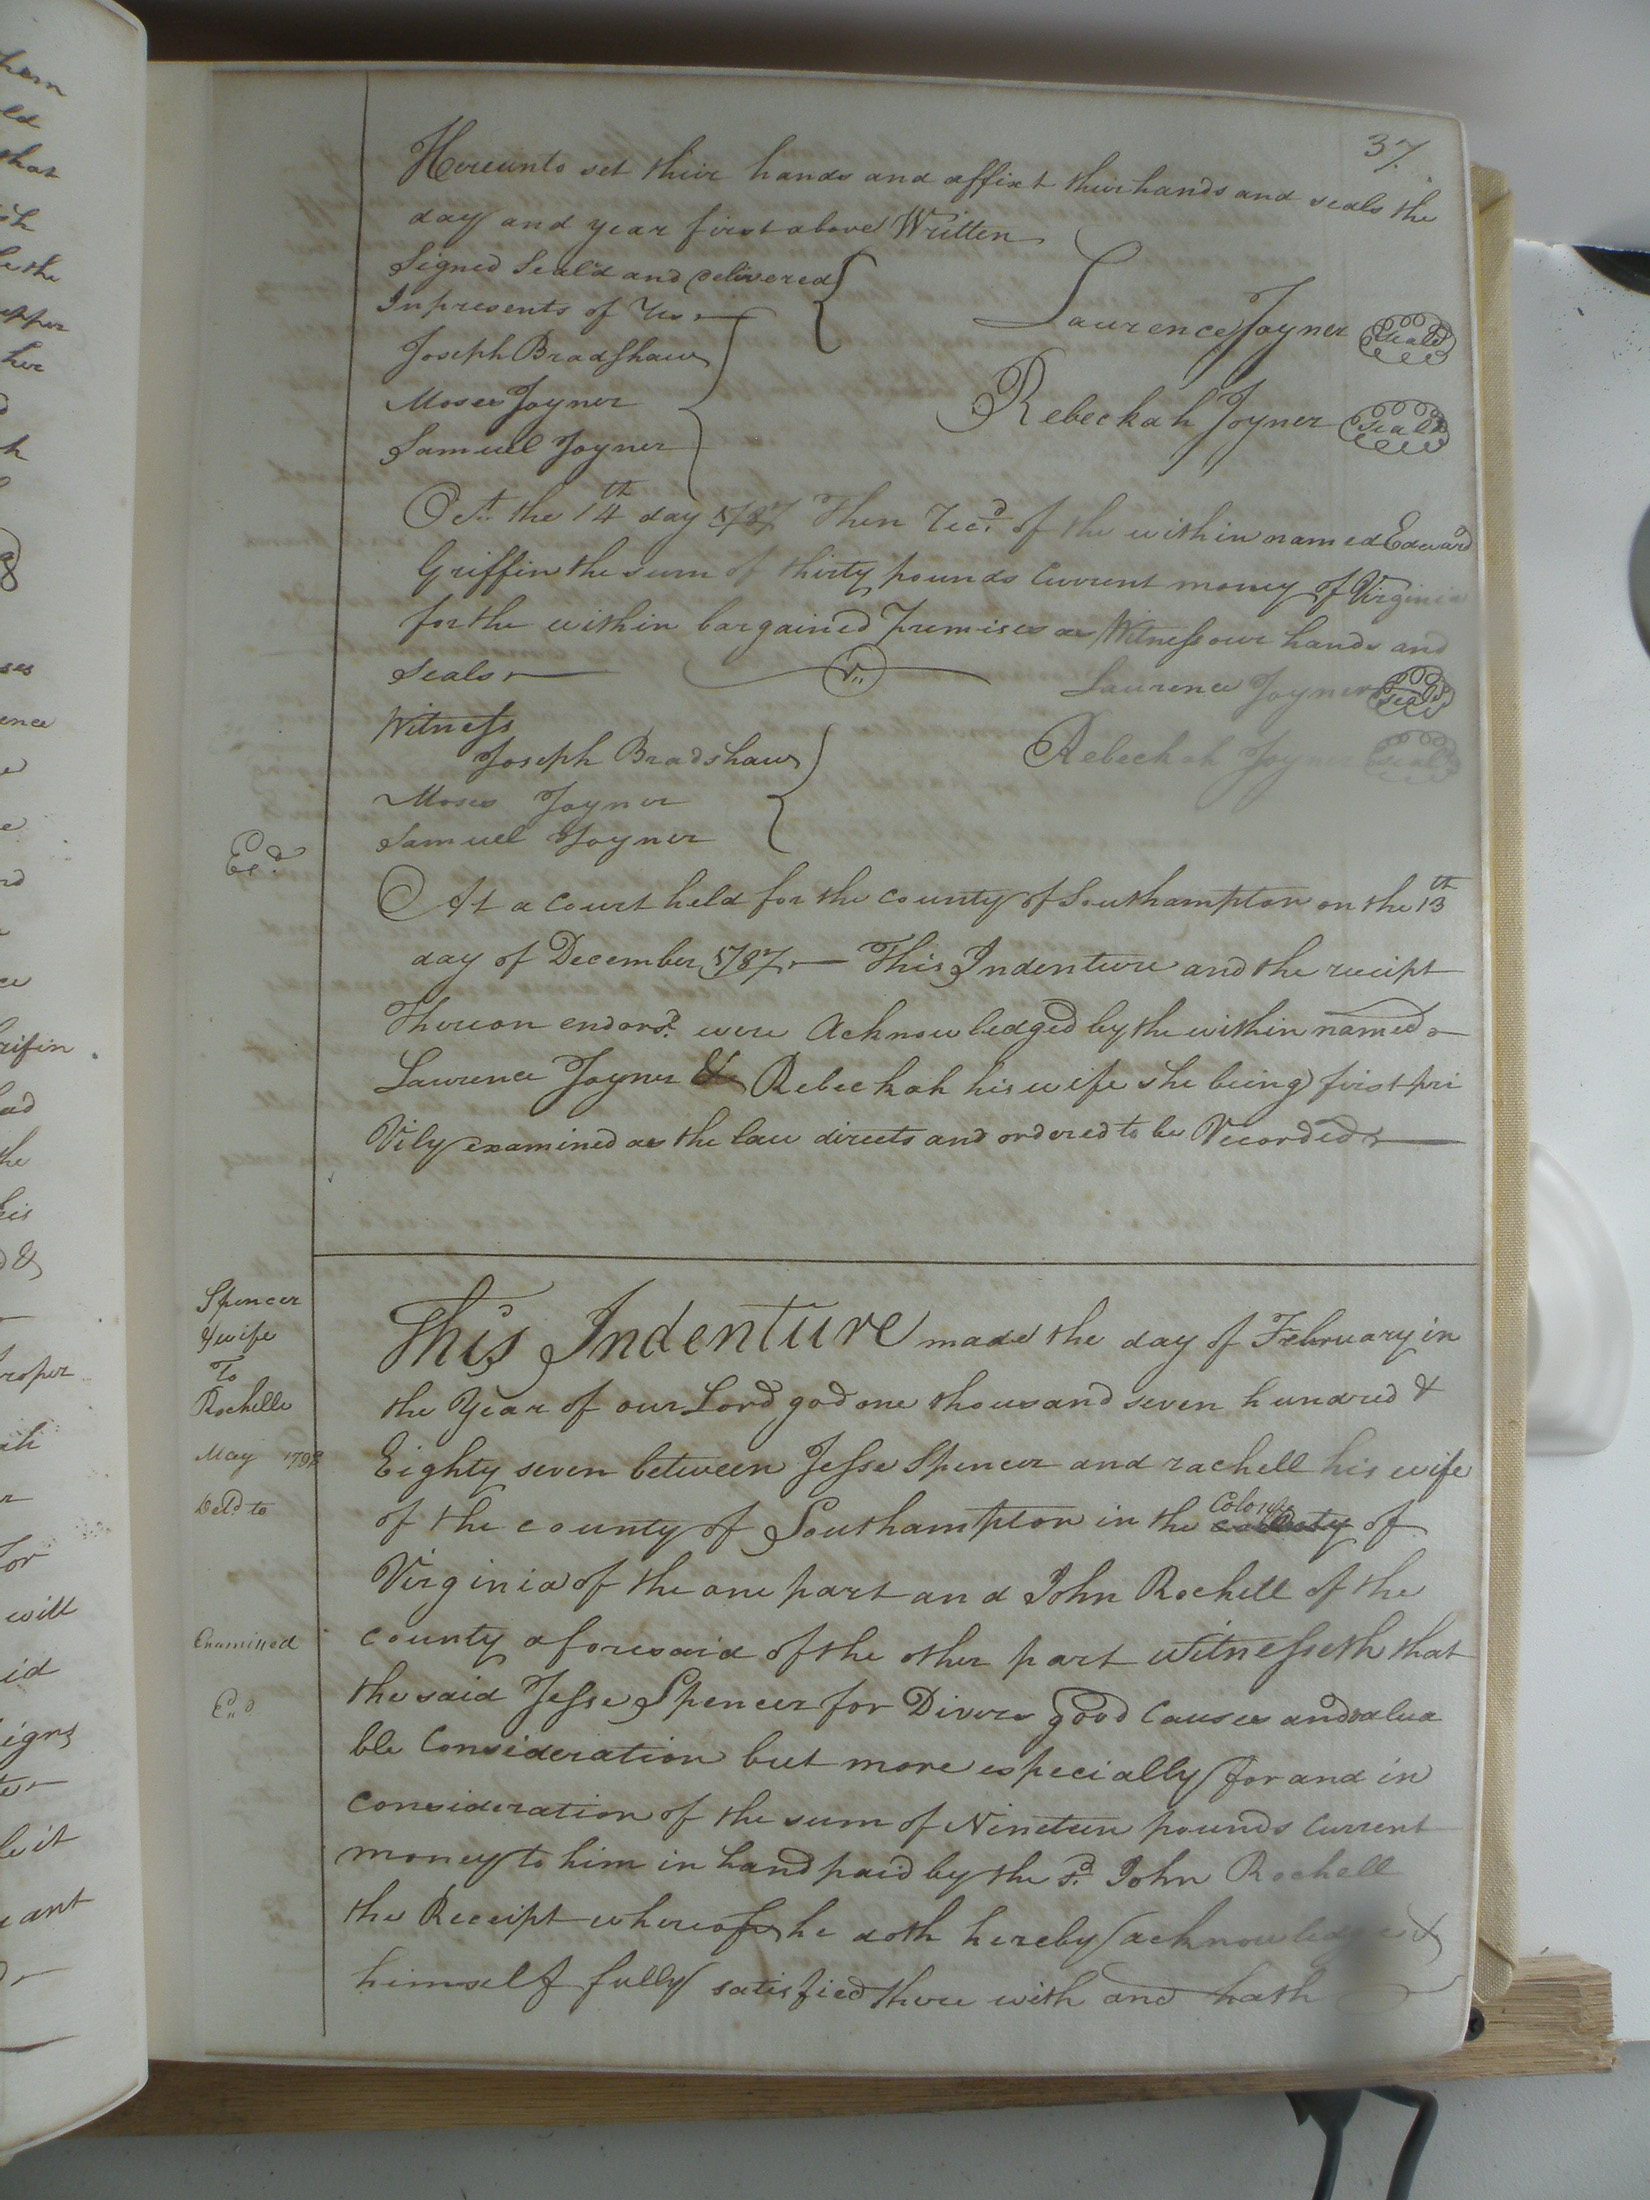 37.
Hereunto set their hands and affixt their hands and seals the
day and year first above Written
Signed Seal'd and delivered
In presents of us
Laurence Joyner Seal
Joseph Bradshaw
Moses Joyner
Rebeckah Joyner Seal
Samuel Joyner
Oct. the 14th day 1787 Then Recd. of the within named Edward
Griffin the sum of thirty pounds Current money of Virginia
for the within bargained Premises as Witness our hands and
Seals
Laurence Joyner Seal
Witness
Joseph Bradshaw
Rebeckah Joyner Seal
Moses Joyner
Samuel Joyner
Exd.
At a Court held for the county of Southampton on the 13th
day of December 1787 This Indenture and the reciept
Thereon endorsd. were Acknowledged by the within named
Laurence Joyner & Rebeckah his wife she being first pri
Vily examined as the law directs and ordered to be Recorded
Spencer
& wife
To
Rochelle
May 1798
Deld to
Examined
Exd
This Indenture made the day of February in
the Year of our Lord god one thousand seven hundred &
Eighty seven between Jesse Spencer and rachell his wife
of the county of Southampton in the Colony of
Virginia of the one part and John Rochell of the
county aforesaid of the other part Witnesseth that
the said Jesse Spencer for Divers good Causes and valua
ble Consideration but more especially for and in
Consideration of the sum of Nineteen pounds Current
money to him in hand paid by the sd. John Rochell
the Receipt whereof he doth hereby acknowledge &
himself fully satisfied there with and hath